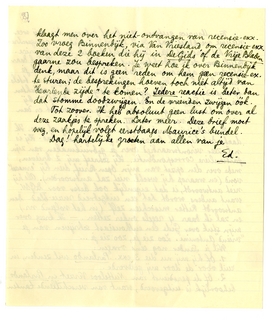 klaagt men over het niet-ontvangen van recensie-exx.
Zoo vroeg Binnendijk, via van Vriesland om recensie exx
van deze 2 boeken die hij in de Gids of de Vrije Bladen
gaarne zou bespreken. Je weet hoe ik over Binnendijk
denk, maar dit is geen reden om hem geen recensie-ex.
te sturen; de besprekingen hoeven toch niet altijd van
zijde" te komen? Iedere reactie is beter dan
dat stomme doodzwijgen. En de vrienden zwijgen ook.
Tot zoover. Ik heb absoluut geen lust om over al
deze zaakjes te spreken. Later meer. Deze brief moet
weg, en hopelijk volgt eerstdaags Maurice's bundel.
Dag! hartelijke groeten aan allen van je
Ed.